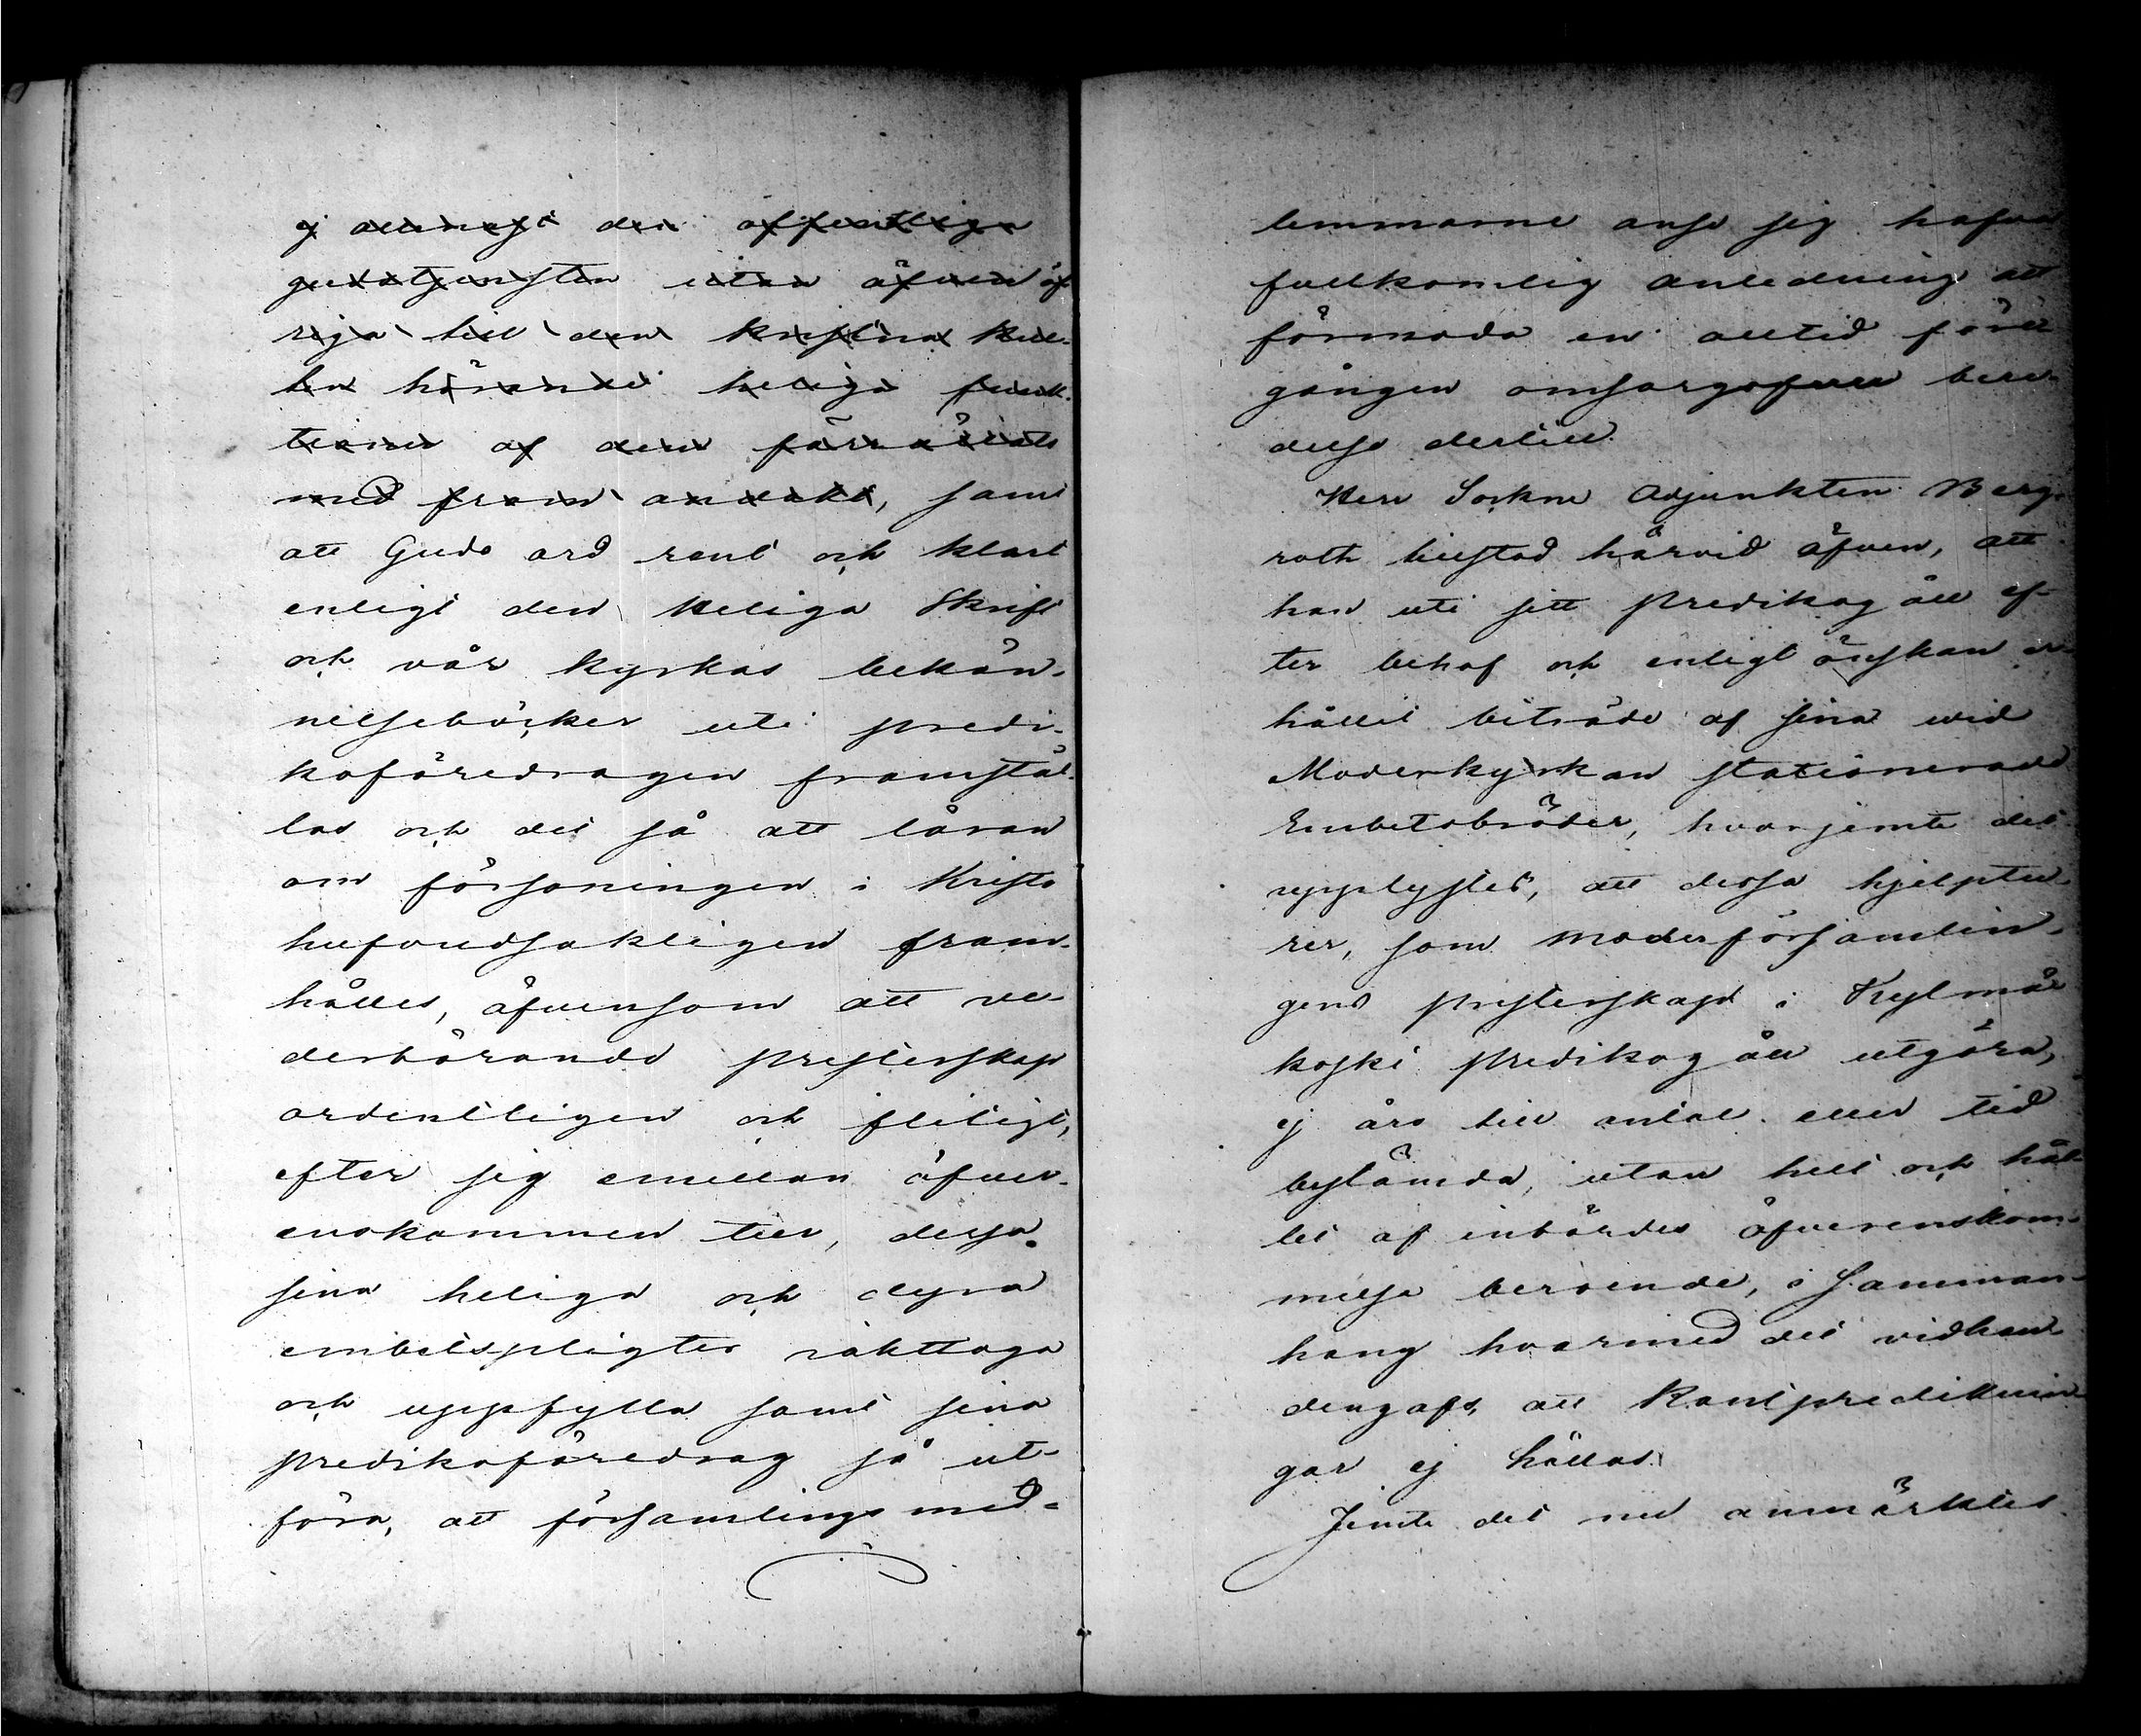 ej allenast den offentliga
gudstjensten utan äfven öf
riga till den kristna kul-
ten hörande heliga funk-
tioner af dem förrättats
med from andakt, samt
att Guds ord rent och klart
enligt den Heliga Skrift
och vår kyrkas bekän-
nelseböcker uti predi-
koföredragen framstäl-
las och det så att läran
om försoningen i Kristo
hufvudsakligen fram-
hålles, äfvensom att ve-
derbörande presterskap
ordentligen och flitigt,
efter sig emellan öfver-
enskommen tur, dessa
sina heliga och dyra
embetspligter iakttaga
och uppfylla samt sina
predikoföredrag så ut-
föra, att församlings med-
lemmarne anse sig hafva
fullkomlig anledning att
förmoda en alltid före-
gången omsorgsfull bere-
delse dertill.
Herr Sockne Adjunkten Berg-
roth tillstod härvid äfven, att
han uti sitt Predikogäll ef-
ter behof och enligt önskan er-
hållit biträde af sina wid
Moderkyrkan stationerade
Embetsbröder, hvarjemte det
upplystes, att dessa hjelptu-
rer, som moderförsamlin-
gens presterskap i Kylmä-
koski Predikogäll utgöra,
ej äro till antal eller tid
bestämda, utan helt och hål-
let af inbördes öfverenskom-
melse beroende, i samman-
hang hvarmed det vidhan-
dengafs, att Passprediknin-
gar ej hållas.
Jemte det nu anmärktes